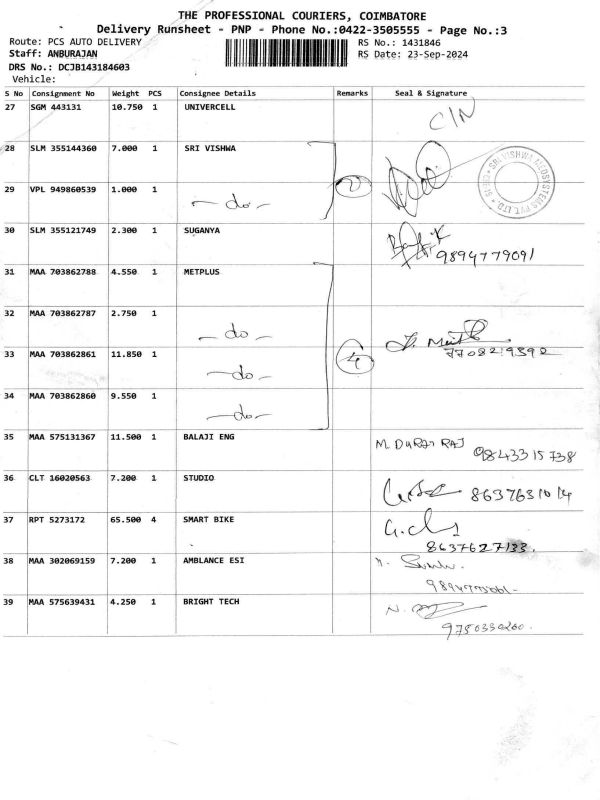 THE PROFESSIONAL COURIERS, COIMBATORE
Delivery Runsheet - PNP - Phone No.:0422-3505555 - Page No.:3
Route: PCS AUTO DELIVERY RS No.: 1431846
Staff: ANBURAJAN RS Date: 23-Sep-2024
DRS No.: DCJB143184603
Vehicle:
S No Consignment No Weight PCS Consignee Details Remarks Seal & Signature
27 SGM 443131 10.750 1 UNIVERCELL
C/N
28 SLM 355144360 7.000 1 SRI VISHWA
2
SRI VISHWA GEOSYSTEMS PVT. LTD.
29 VPL 949860539 1.000 1
-do-
30 SLM 355121749 2.300 1 SUGANYA
9894779091
31 MAA 703862788 4.550 1 METPLUS
32 MAA 703862787 2.750 1
-do-
33 MAA 703862861 11.850 1 4
-do-
34 MAA 703862860 9.550 1
-do-
35 MAA 575131367 11.500 1 BALAJI ENG M. DURAI RAJ
9843315738
36 CLT 16020563 7.200 1 STUDIO
8637631014
37 RPT 5273172 65.500 4 SMART BIKE
8637627133.
38 MAA 302069159 7.200 1 AMBLANCE ESI
39 MAA 575639431 4.250 1 BRIGHT TECH
9750330260.